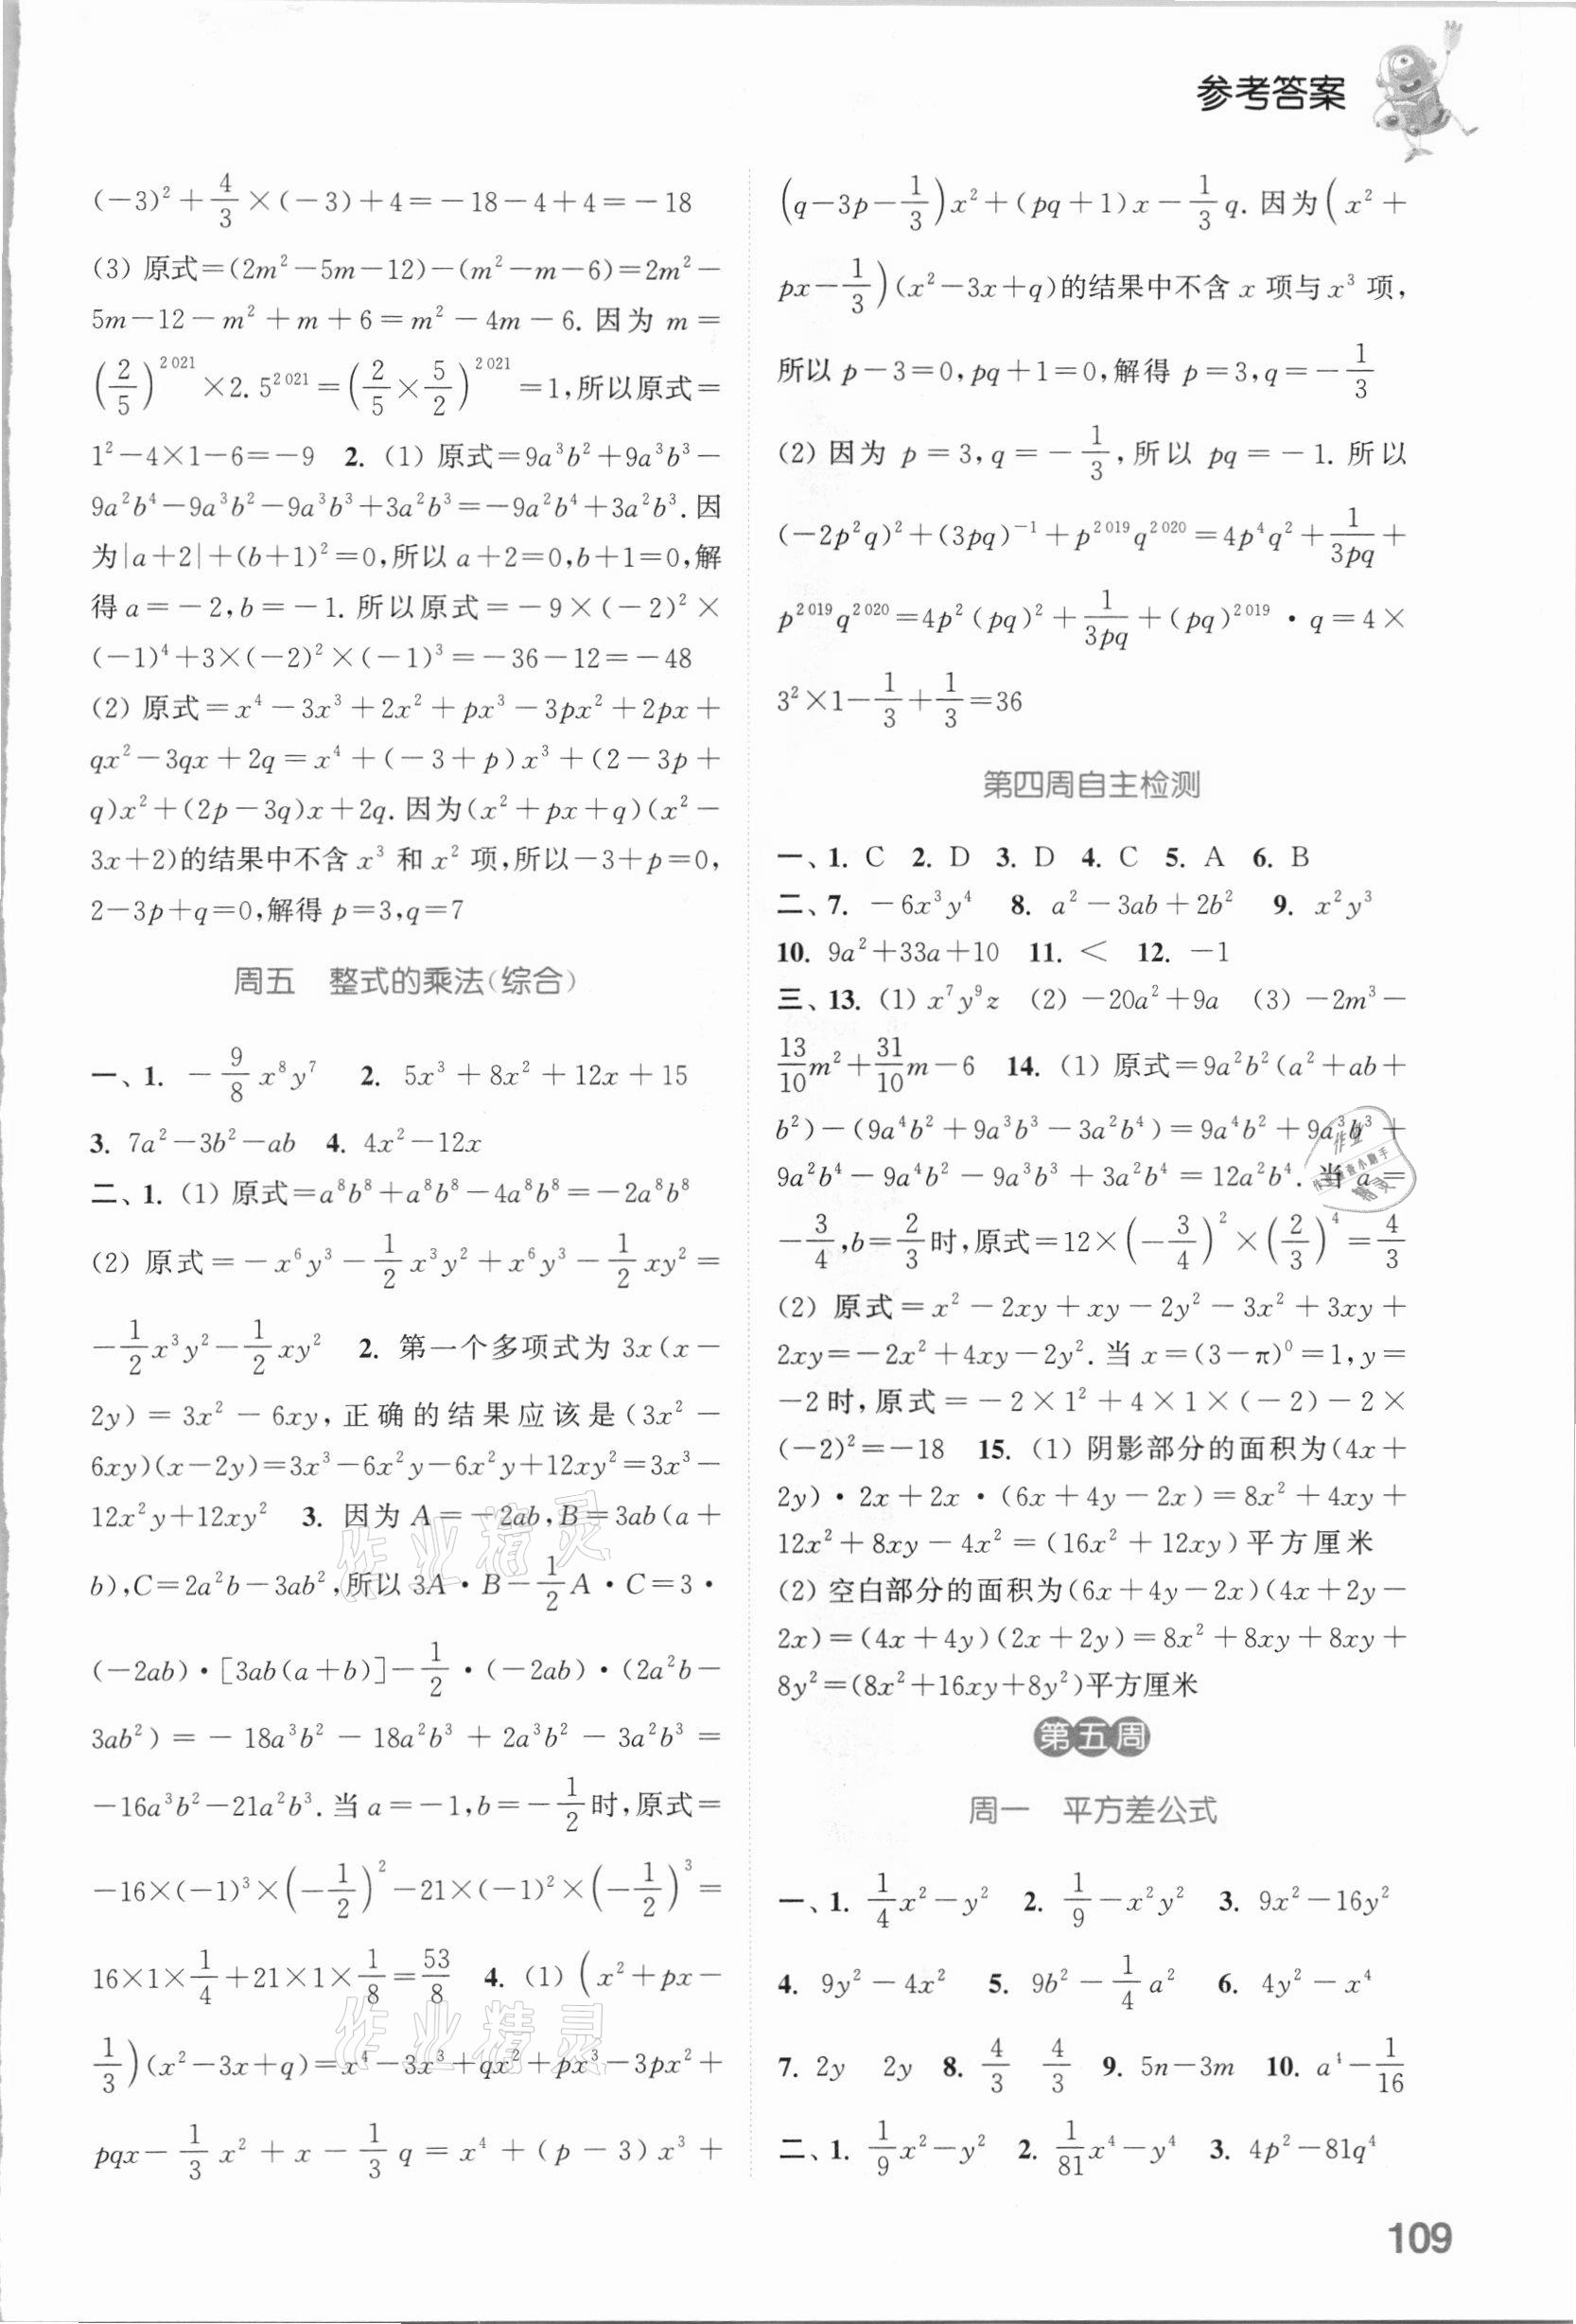 参考答案
(-3)²+4/3×(-3)+4=-18-4+4=-18
(3) 原式=(2m²-5m-12)-(m²-m-6)=2m²-
5m-12-m²+m+6=m²-4m-6. 因为 m=
(2/5)^2021×2.5^2021=(2/5×5/2)^2021=1,所以原式=
1²-4×1-6=-9 2. (1) 原式=9a³b²+9a³b³-
9a²b⁴-9a³b²-9a³b³+3a²b³=-9a²b⁴+3a²b³. 因
为|a+2|+(b+1)²=0,所以 a+2=0,b+1=0,解
得 a=-2,b=-1. 所以原式=-9×(-2)²×
(-1)⁴+3×(-2)²×(-1)³=-36-12=-48
(2) 原式=x⁴-3x³+2x²+px³-3px²+2px+
qx²-3qx+2q=x⁴+(-3+p)x³+(2-3p+
q)x²+(2p-3q)x+2q. 因为(x²+px+q)(x²-
3x+2)的结果中不含 x³ 和 x² 项,所以-3+p=0,
2-3p+q=0,解得 p=3,q=7
周五 整式的乘法(综合)
一、1. -9/8 x⁸y⁷ 2. 5x³+8x²+12x+15
3. 7a²-3b²-ab 4. 4x²-12x
二、1. (1) 原式=a⁸b⁸+a⁸b⁸-4a⁸b⁸=-2a⁸b⁸
(2) 原式=-x⁶y³-1/2 x³y²+x⁶y³-1/2 xy²=
-1/2 x³y²-1/2 xy² 2. 第一个多项式为 3x(x-
2y)=3x²-6xy,正确的结果应该是(3x²-
6xy)(x-2y)=3x³-6x²y-6x²y+12xy²=3x³-
12x²y+12xy² 3. 因为 A=-2ab,B=3ab(a+
b),C=2a²b-3ab²,所以 3A·B-1/2 A·C=3·
(-2ab)·[3ab(a+b)]-1/2·(-2ab)·(2a²b-
3ab²)=-18a³b²-18a²b³+2a³b²-3a²b³=
-16a³b²-21a²b³. 当 a=-1,b=-1/2时,原式=
-16×(-1)³×(-1/2)²-21×(-1)²×(-1/2)³=
16×1×1/4+21×1×1/8=53/8 4. (1) (x²+px-
1/3)(x²-3x+q)=x⁴-3x³+qx²+px³-3px²+
pqx-1/3 x²+x-1/3 q=x⁴+(p-3)x³+
(q-3p-1/3)x²+(pq+1)x-1/3 q. 因为(x²+
px-1/3)(x²-3x+q)的结果中不含 x 项与 x³ 项,
所以 p-3=0,pq+1=0,解得 p=3,q=-1/3
(2) 因为 p=3,q=-1/3,所以 pq=-1. 所以
(-2p²q)²+(3pq)⁻¹+p^2019 q^2020=4p⁴q²+1/(3pq)+
p^2019 q^2020=4p²(pq)²+1/(3pq)+(pq)^2019·q=4×
3²×1-1/3+1/3=36
第四周自主检测
一、1. C 2. D 3. D 4. C 5. A 6. B
二、7. -6x³y⁴ 8. a²-3ab+2b² 9. x²y³
10. 9a²+33a+10 11. < 12. -1
三、13. (1) x⁷y⁹z (2) -20a²+9a (3) -2m³-
13/10 m²+31/10 m-6 14. (1) 原式=9a²b²(a²+ab+
b²)-(9a⁴b²+9a³b³-3a²b⁴)=9a⁴b²+9a³b³+
9a²b⁴-9a⁴b²-9a³b³+3a²b⁴=12a²b⁴. 当 a=
-3/4,b=2/3时,原式=12×(-3/4)²×(2/3)⁴=4/3
(2) 原式=x²-2xy+xy-2y²-3x²+3xy+
2xy=-2x²+4xy-2y². 当 x=(3-π)⁰=1,y=
-2时,原式=-2×1²+4×1×(-2)-2×
(-2)²=-18 15. (1) 阴影部分的面积为(4x+
2y)·2x+2x·(6x+4y-2x)=8x²+4xy+
12x²+8xy-4x²=(16x²+12xy)平方厘米
(2) 空白部分的面积为(6x+4y-2x)(4x+2y-
2x)=(4x+4y)(2x+2y)=8x²+8xy+8xy+
8y²=(8x²+16xy+8y²)平方厘米
第五周
周一 平方差公式
一、1. 1/4 x²-y² 2. 1/9-x²y² 3. 9x²-16y²
4. 9y²-4x² 5. 9b²-1/4 a² 6. 4y²-x⁴
7. 2y 2y 8. 4/3 4/3 9. 5n-3m 10. a⁴-1/16
二、1. 1/9 x²-y² 2. 1/81 x⁴-y⁴ 3. 4p²-81q⁴
109
作业精灵
作业精灵